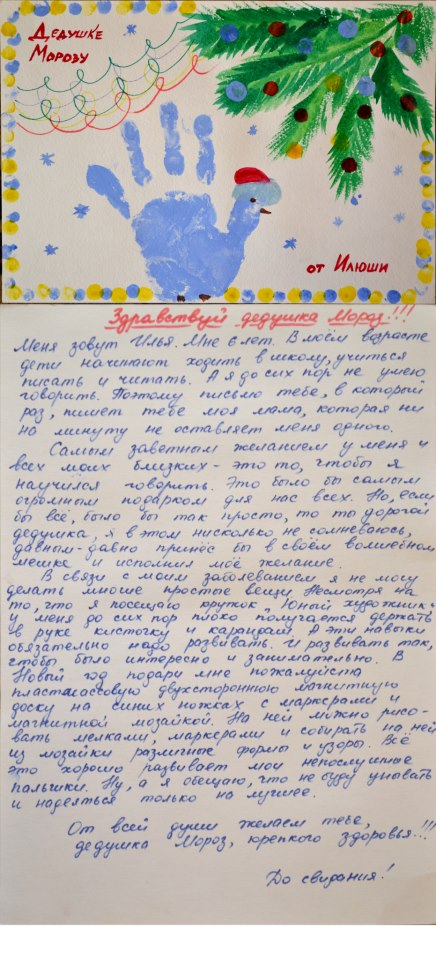 Дедушке
Морозу
от Илюши
Здравствуй дедушка Мороз!!!
Меня зовут Илья. Мне 6 лет. В моём возрасте
дети начинают ходить в школу, учиться
писать и читать. А я до сих пор не умею
говорить. Поэтому письмо тебе, в который
раз, пишет тебе моя мама, которая ни
на минуту не оставляет меня одного.
Самым заветным желанием у меня и
всех моих близких - это то, чтобы я
научился говорить. Это было бы самым
огромным подарком для нас всех. Но, если
бы всё, было бы так просто, то ты дорогой
дедушка, я в этом нисколько не сомневаюсь,
давным-давно принёс бы в своём волшебном
мешке и исполнил моё желание.
В связи с моим заболеванием я не могу
делать многие простые вещи. Несмотря на
то, что я посещаю кружок „Юный художник"
у меня до сих пор плохо получается держать
в руке кисточку и карандаш. А эти навыки
обязательно надо развивать. И развивать так,
чтобы было интересно и занимательно. В
Новый год подари мне пожалуйста
пластмассовую двухстороннюю магнитную
доску на синих ножках с маркерами и
магнитной мозайкой. На ней можно рисо-
вать мелками, маркерами и собирать на ней
из мозайки различные формы и узоры. Всё
это хорошо развивает мои непослушные
пальчики. Ну, а я обещаю, что не буду унывать
и надеяться только на лучшее.
От всей души желаем тебе,
дедушка Мороз, крепкого здоровья!!!
До свидания!